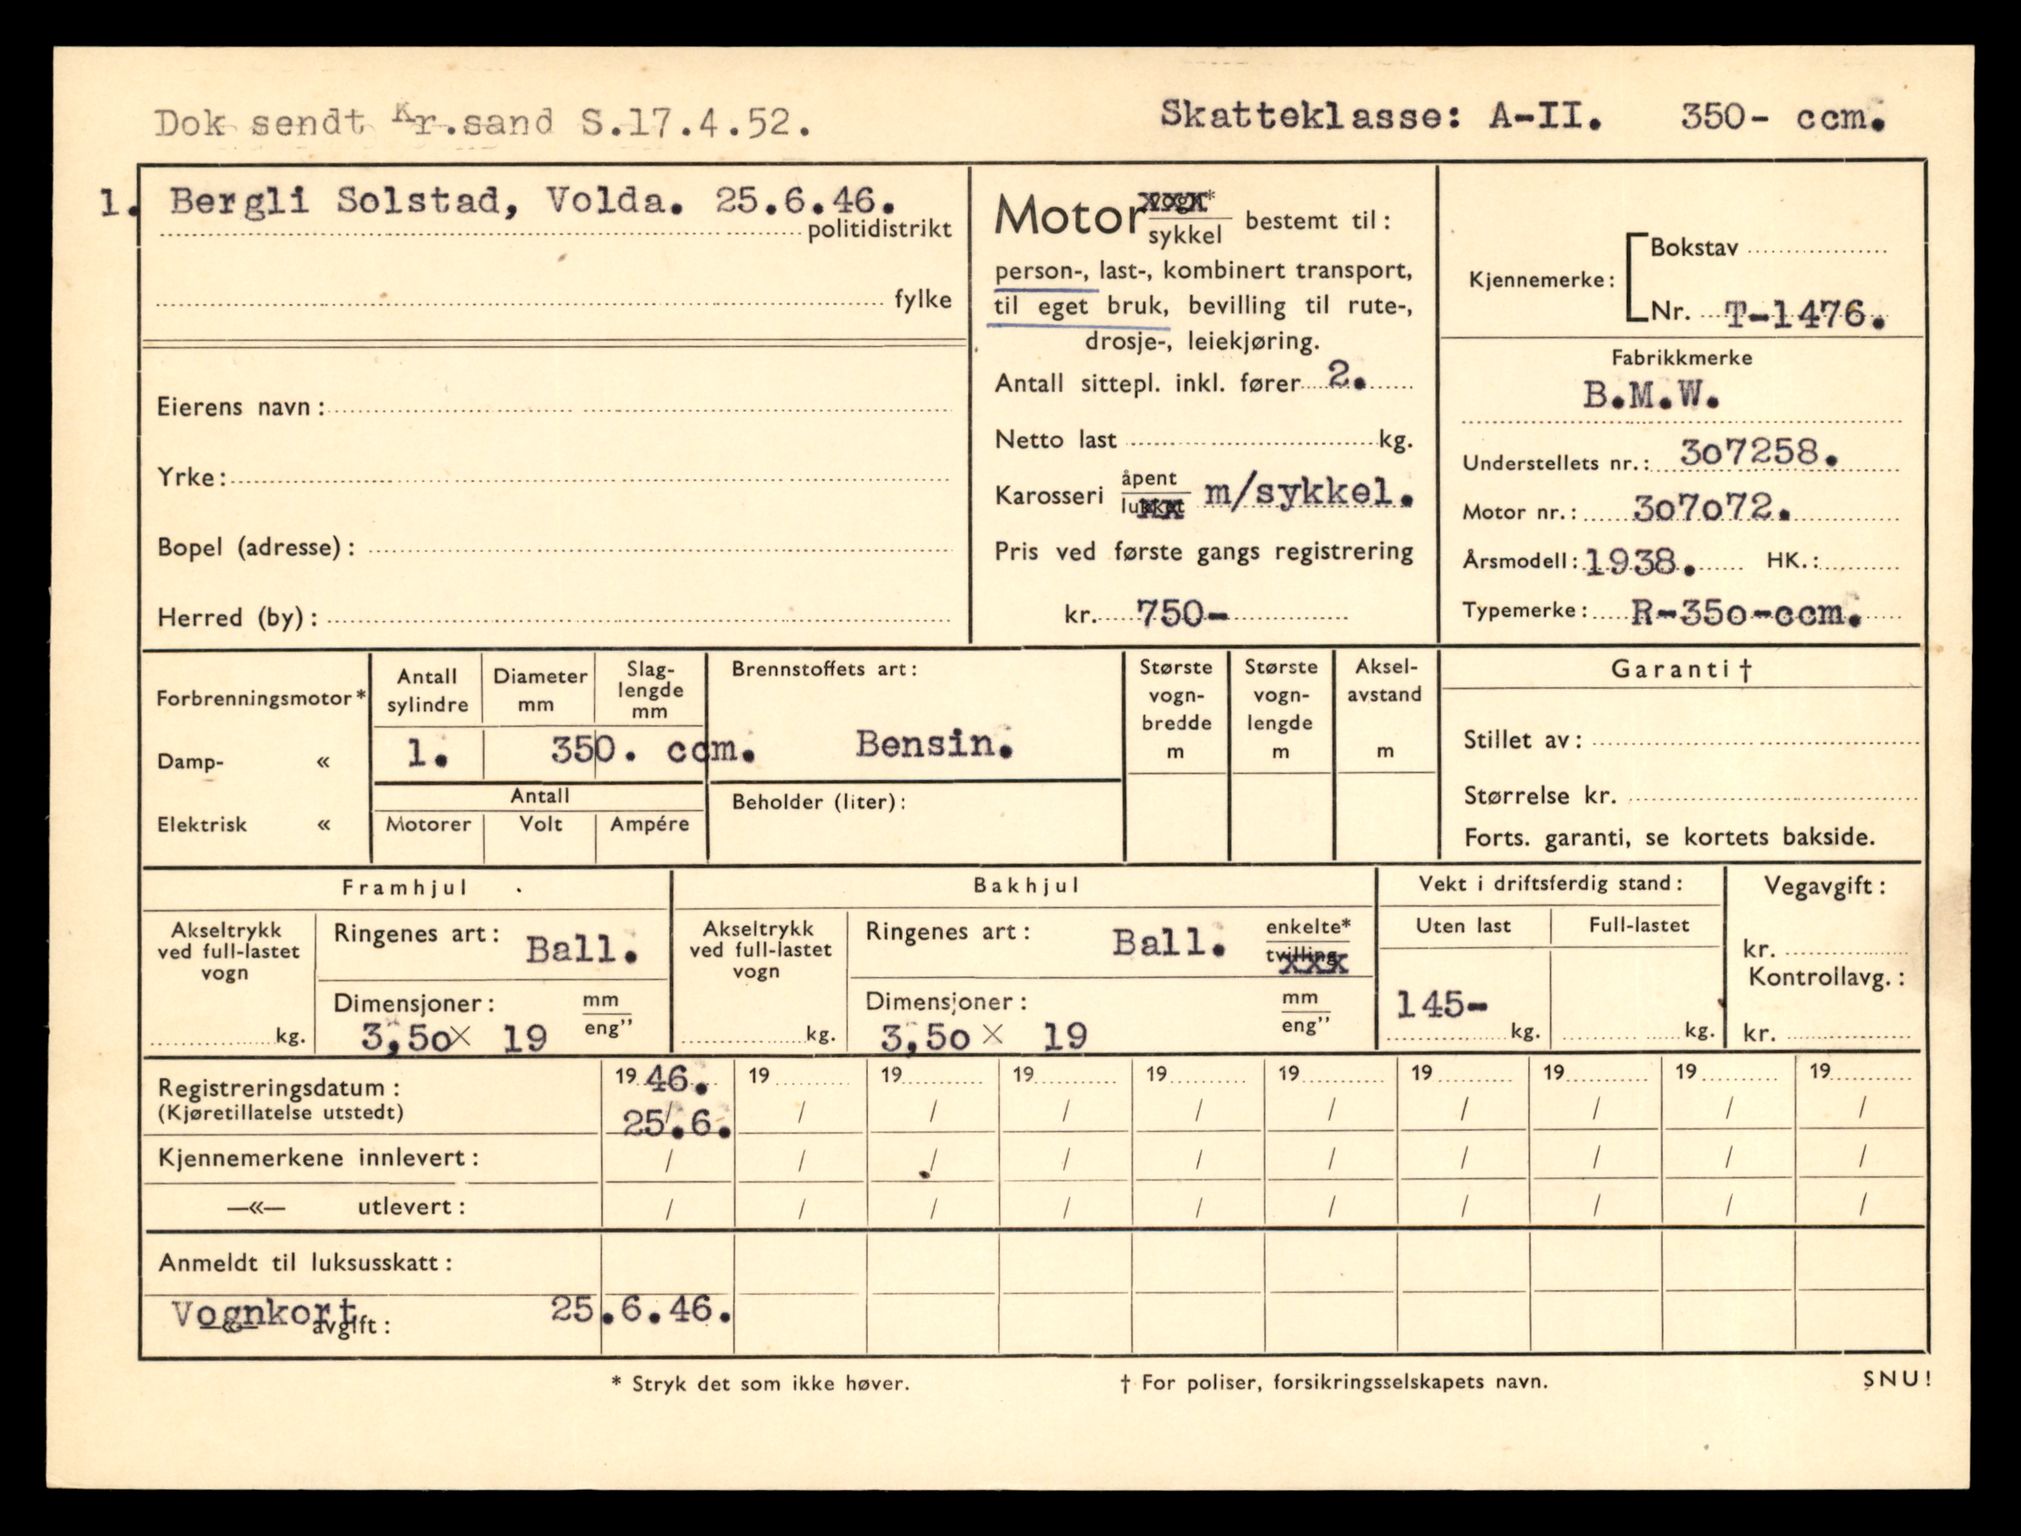 Dok sendt Kr.sand S.17.4.52.
Skatteklasse: A-II. 350- ccm.
1. Bergli Solstad, Volda. 25.6.46.
politidistrikt
fylke
Eierens navn:
Yrke:
Bopel (adresse):
Herred (by):
Motor vogn*
sykkel bestemt til:
person-, last-, kombinert transport,
til eget bruk, bevilling til rute-,
drosje-, leiekjøring.
Antall sittepl. inkl. fører 2.
Netto last kg.
Karosseri åpent
lukket m/sykkel.
Pris ved første gangs registrering
kr. 750-
Kjennemerke: Bokstav
Nr. T-1476.
Fabrikkmerke
B.M.W.
Understellets nr.: 307258.
Motor nr.: 307072.
Årsmodell: 1938. HK.:
Typemerke: R-350-ccm.
Forbrenningsmotor*
Damp- «
Elektrisk «
Antall sylindre
Diameter mm
Slaglengde mm
1. 350. ccm.
Antall
Motorer Volt Ampére
Brennstoffets art:
Bensin.
Beholder (liter):
Største vognbredde m
Største vognlengde m
Akselavstand m
Garanti †
Stillet av:
Størrelse kr.
Forts. garanti, se kortets bakside.
Framhjul
Akseltrykk
ved full-lastet
vogn
kg.
Ringenes art: Ball.
Dimensjoner: mm
eng”
3,50 × 19
Bakhjul
Akseltrykk
ved full-lastet
vogn
kg.
Ringenes art: Ball. enkelte*
tvilling
xxx
Dimensjoner: mm
eng”
3,50 × 19
Vekt i driftsferdig stand:
Uten last Full-lastet
145-
kg. kg.
Vegavgift:
kr.
Kontrollavg.:
kr.
Registreringsdatum: 19 46. 19 19 19 19 19 19 19 19 19
(Kjøretillatelse utstedt) 25/.6. / / / / / / / / /
Kjennemerkene innlevert: / / / / / / / / / /
—«— utlevert: / / / / / / / / / /
Anmeldt til luksusskatt:
Vognkort avgift: 25.6.46.
* Stryk det som ikke høver.
† For poliser, forsikringsselskapets navn.
SNU!